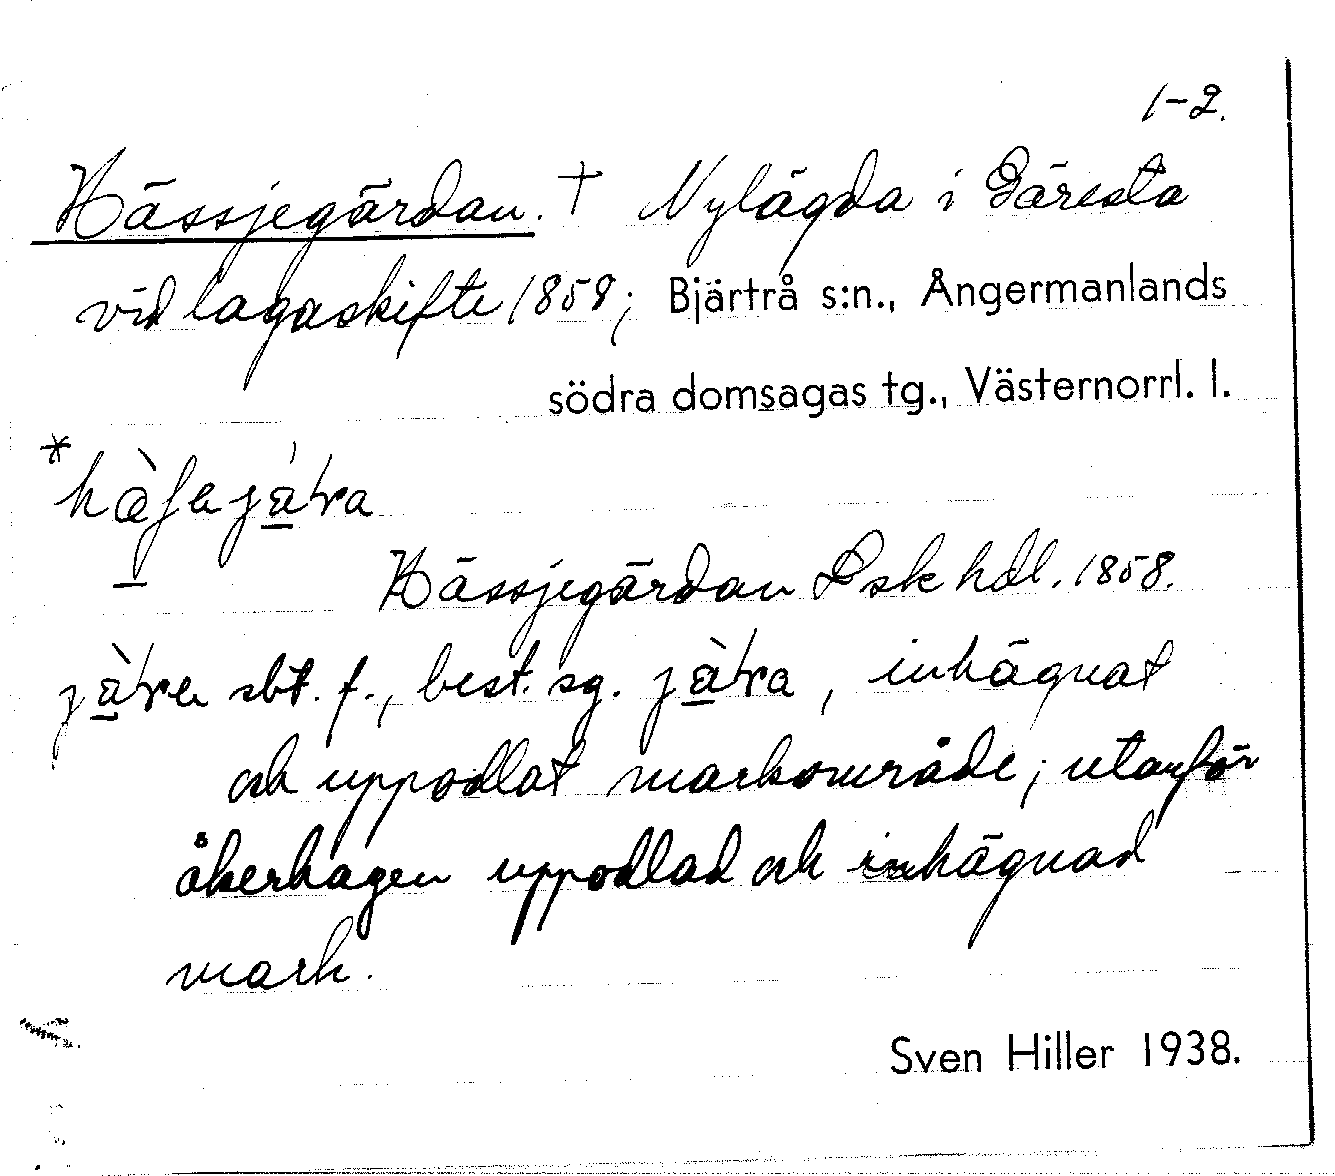 1-2.
Hässjegärdan. † Nylägda i Gäresta
vid lagaskifte 1858; Bjärtrå s:n., Ångermanlands
södra domsagas tg., Västernorrl. l.
Hässjegärdan Lsk hdl. 1858.
sbt. f., best. sg. , inhägnat
och uppodlat markområde; utanför
åkerhagen uppodlad och inhägnad
mark.
Sven Hiller 1938.